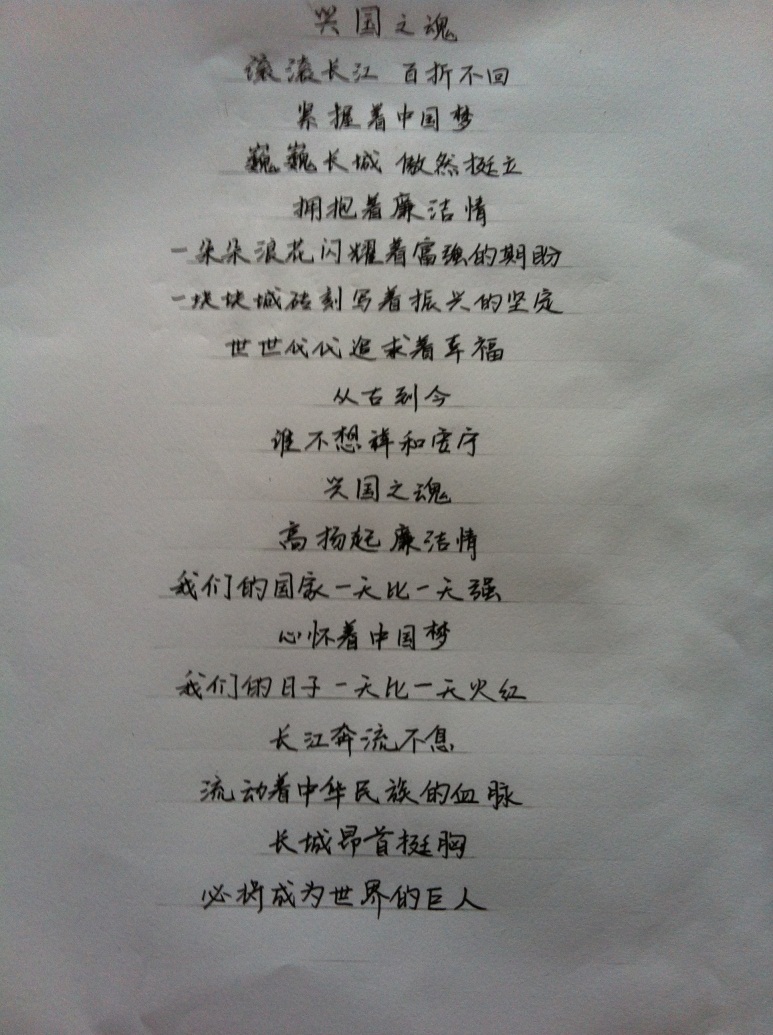 兴国之魂
滚滚长江 百折不回
紧握着中国梦
巍巍长城 傲然挺立
拥抱着廉洁情
一朵朵浪花闪耀着富强的期盼
一块块城砖刻写着振兴的坚定
世世代代追求着幸福
从古到今
谁不想祥和安宁
兴国之魂
高扬起廉洁情
我们的国家一天比一天强
心怀着中国梦
我们的日子一天比一天火红
长江奔流不息
流动着中华民族的血脉
长城昂首挺胸
必将成为世界的巨人